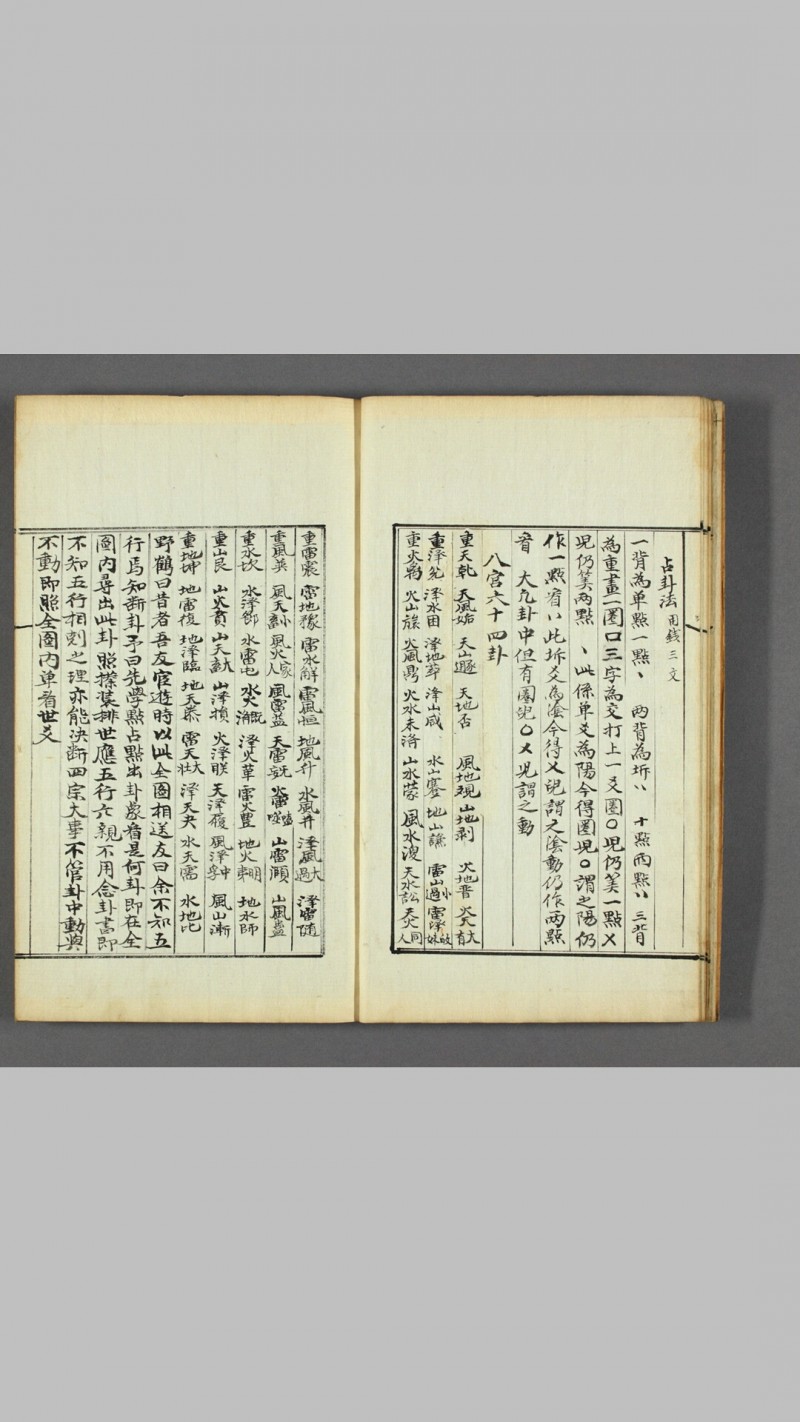 占卦法 用錢三文
一背為单點一點丶 兩背為坼丷 十點兩點丷 三背
為重畫一圈口三字為交打上一爻圈○児仍筭一點乂
児仍筭兩點 丶此係单爻為陽今得圈児○謂之陽仍
作一點看丷此坼爻為陰今得乂児謂之陰動仍作兩點
看 大凢卦中但有圈児○乂児謂之動
八宫六十四卦
重天乾 天風姤 天山遯 天地否 風地观 山地剥 火地晋 火天大有
重澤兌 泽水困 泽地萃 泽山咸 水山蹇 地山謙 雷山小過 雷澤歸妹
重火离 火山旅 火風鼎 火水未济 山水蒙 風水渙 天水訟 天火同人
重雷震 雷地豫 雷水解 雷風恒 地風升 水風井 泽風大過 泽雷随
重風巽 風天小 風火家人 風雷益 天雷无 火雷噬嗑 山雷頤 山風蠱
重水坎 水泽節 水雷屯 水火既濟 泽火革 雷火豊 地火明夷 地水師
重山艮 山火賁 山天大 山泽損 火泽睽 天泽履 風泽中孚 風山渐
重地坤 地雷復 地泽臨 地天泰 雷天大壮 泽天夬 水天需 水地比
野鶴曰昔者吾友宦遊時以此全圖相送友曰余不知五
行焉知断卦予曰先學點占點出卦象看是何卦即在全
圖内尋出此卦照樣装排世應五行六親不用念卦書即
不知五行相剋之理亦能决断四宗大事不管卦中動與
不動即照全圖内单看世爻